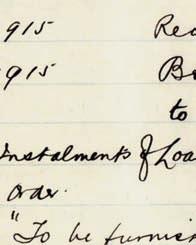 915 Rec
915 Be
to
Instalments of Loa
Order.
"To be furnis